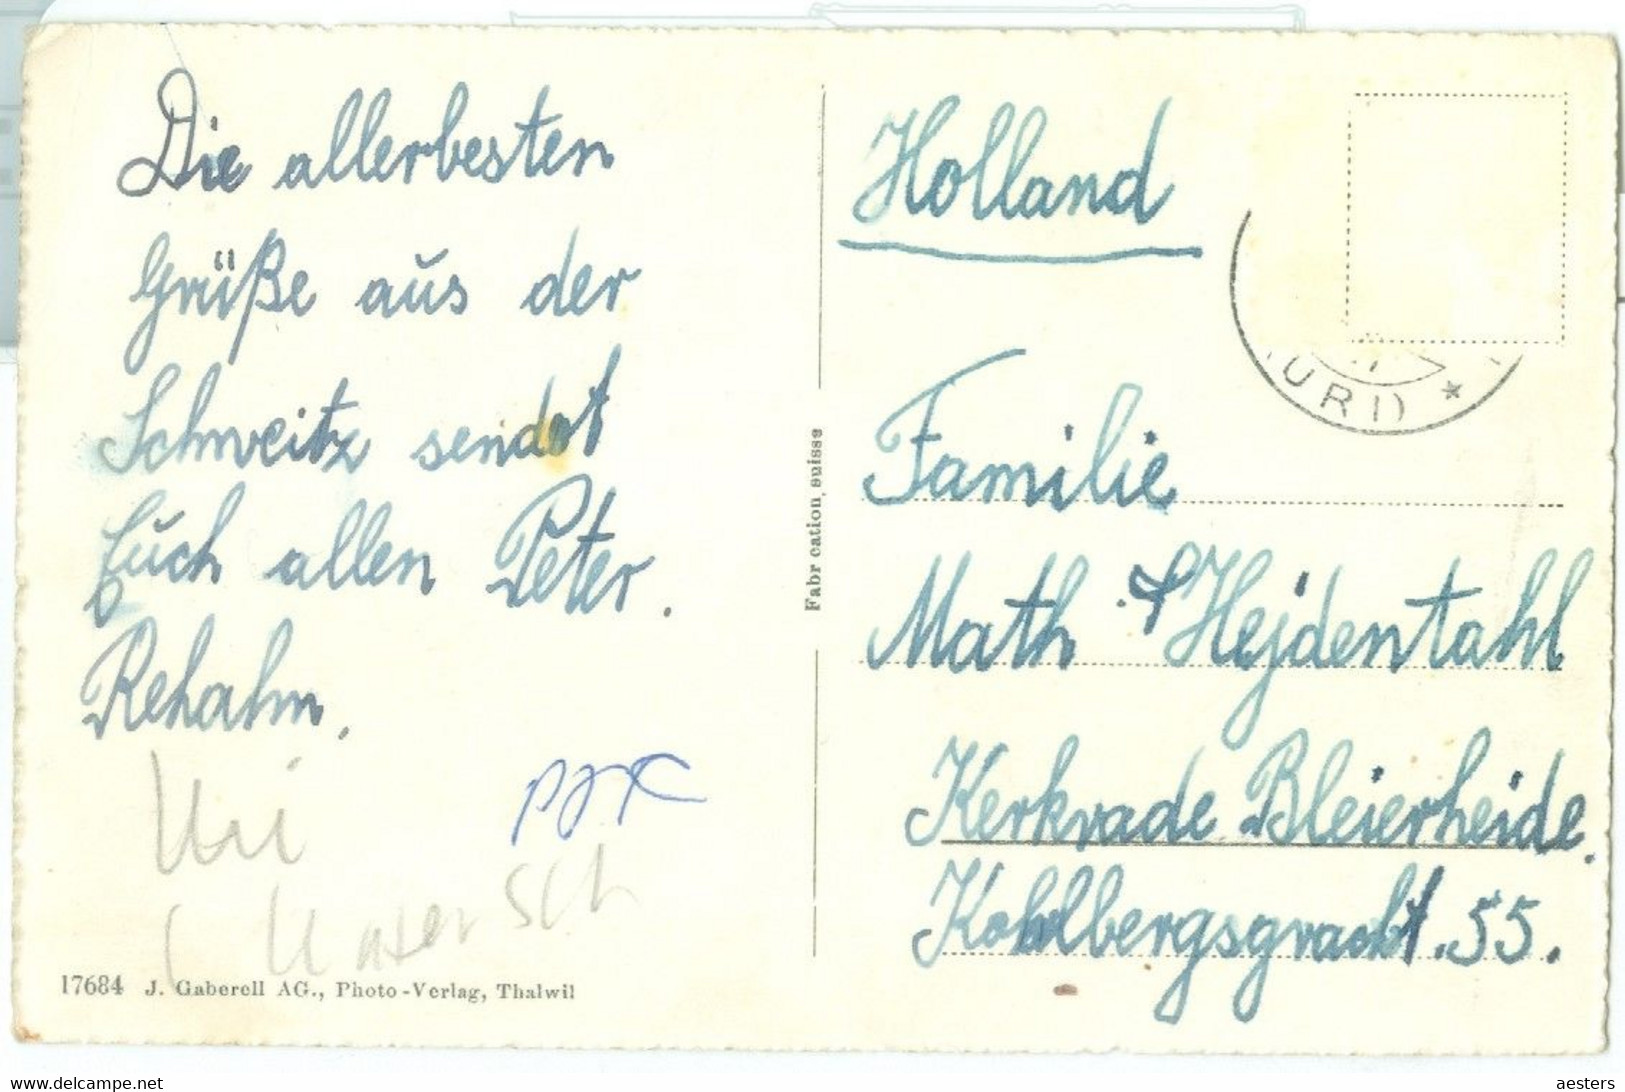 Die allerbesten
Grüße aus der
Schweitz sendet
Euch allen Peter.
Rehahm.
Uri
17684 J. Gaberell AG., Photo-Verlag, Thalwil
Fabrication suisse
Holland
(URI) *
Familie
Math Hejdentahl
Kerkrade Bleierheide.
Kohlbergsgracht. 55.
www.delcampe.net
aesters